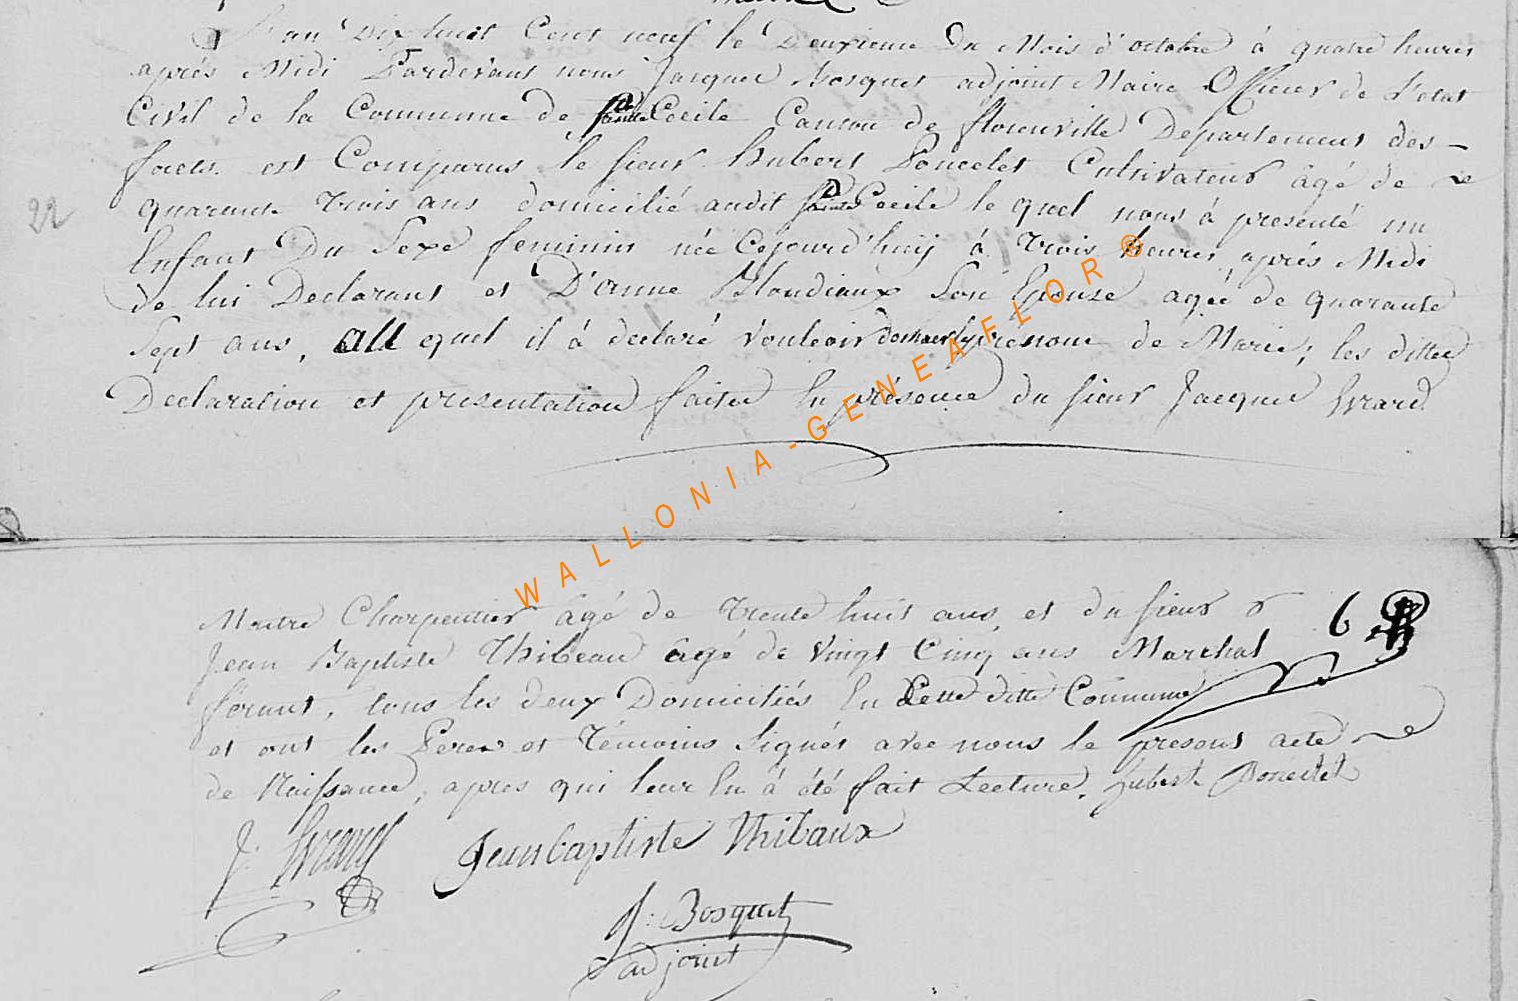 L'an Dix huit Cent neuf le Deuxieme du Mois d'octobre à quatre heures
aprés Midi Pardevant nous Jacque Bosquet adjoint Maire Officier de l'etat
Civil de la Commune de Sainte Cecile Canton de florenville Departement des
forets est Comparus le sieur Hubert Poncelet Cultivateur âgé de
quarante Trois ans domicilié audit Sainte Cecile le quel nous à presenté un
22
Enfant Du Sexe feminin née Cejourd'huij à Trois heures aprés Midi
de lui Declarant et D'anne Blondiaux Son Epouse agée de quarante
Sept ans, all quel il à declaré vouloir donner le prenom de Marie; les dittes
Declaration et presentation faites En présence du sieur Jacque Evrard
Maitre Charpentier âgé de Trente huit ans, et du sieur
6
Jean Baptiste Thibeau agé de vingt Cinq ans Marchal
ferant, tous les deux Domiciliés En Cette ditte Commune
et ont les Peres et Témoins Signés avec nous le present acte
de Naissance, apres qui leur En à été fait Lecture. hubert Poncelet
J: Evrard Jeanbaptiste Thibaux
J: Bosquet
adjoint
WALLONIA-GENEAFLOR ®